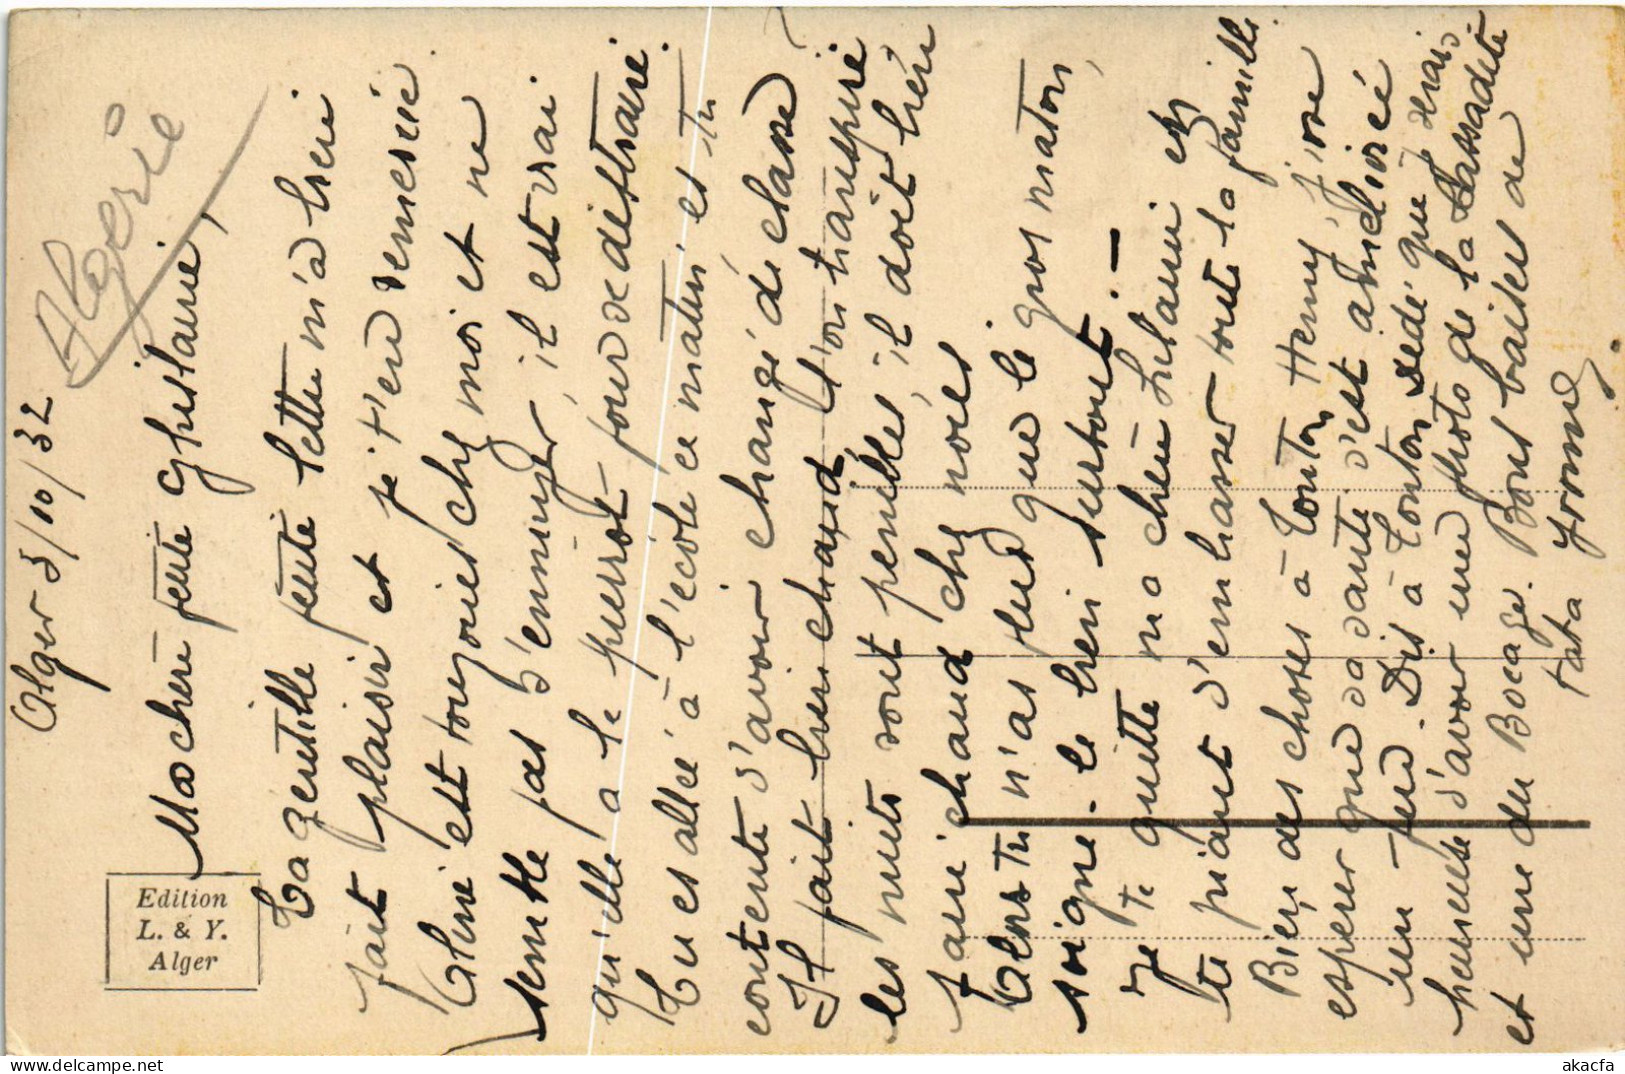 Alger 3/10/32
Algerie
Ma chère petite Ghislaine,
Ta gentille petite lettre m'a bien
fait plaisir et je t'en remercie.
Aline est toujours chez moi et ne
semble pas s'ennuyer, il est vrai
qu'elle a le pierrot pour se distraire.
Tu es allée à l'école ce matin et tu es
contente d'avoir changé de classe
Il fait bien chaud et l'on transpire
les nuits sont penibles, il doit bien
faire chaud chez
Alors tu n'as plus que le gros maton,
soigne-le bien surtout. —
Je te quitte ma chère Ghislaine en
te priant d'embrasser toute la famille
Bien des choses à tonton Henry, j'ose
esperer que sa santé s'est améliorée
un peu. Dis à tonton que je serais
heureuse d'avoir une photo de la
et une du Bocage. Bons baisers de
tata Yvonne.
Edition
L. & Y.
Alger
akacfa